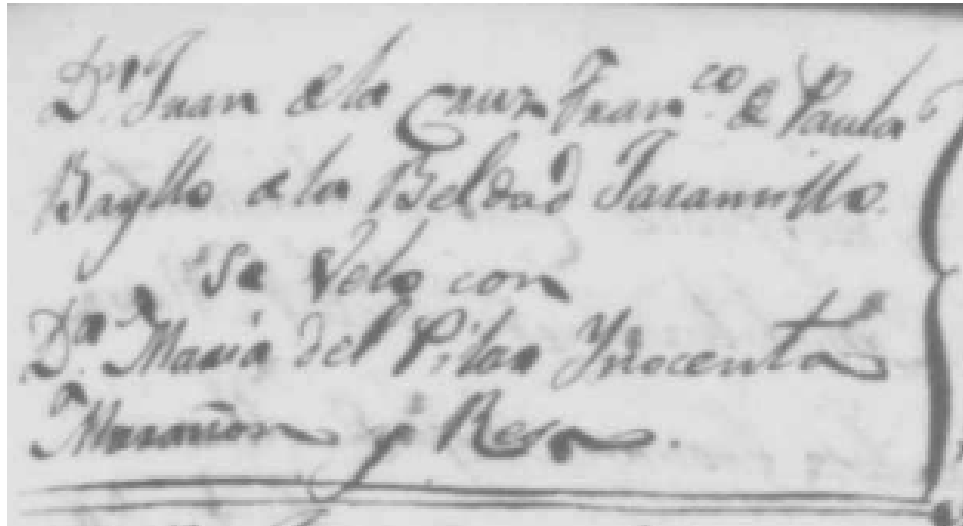 Dn Juan de la Cruz Franco. de Paula
Baylls de la Beldad Jaramillo.
Se Velo con
Da. Maria del Pilar Ynocenta
Marañon y